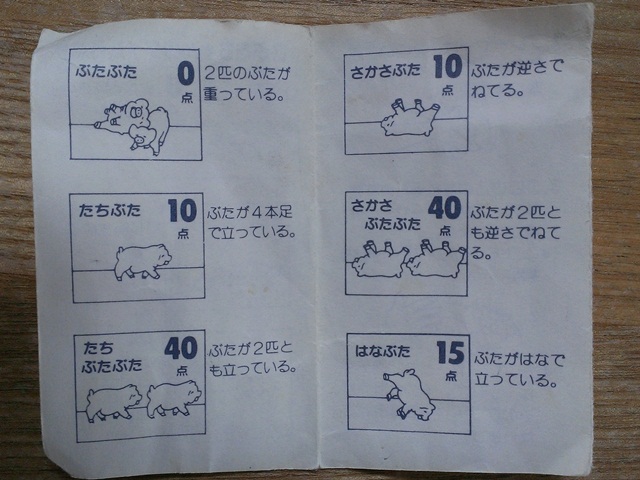 ぶたぶた 0
点
2匹のぶたが
重っている。
たちぶた 10
点
ぶたが4本足
で立っている。
たち
ぶたぶた 40
点
ぶたが2匹と
も立っている。
さかさぶた 10
点
ぶたが逆さで
ねてる。
さかさ
ぶたぶた 40
点
ぶたが2匹と
も逆さでねて
る。
はなぶた 15
点
ぶたがはなで
立っている。